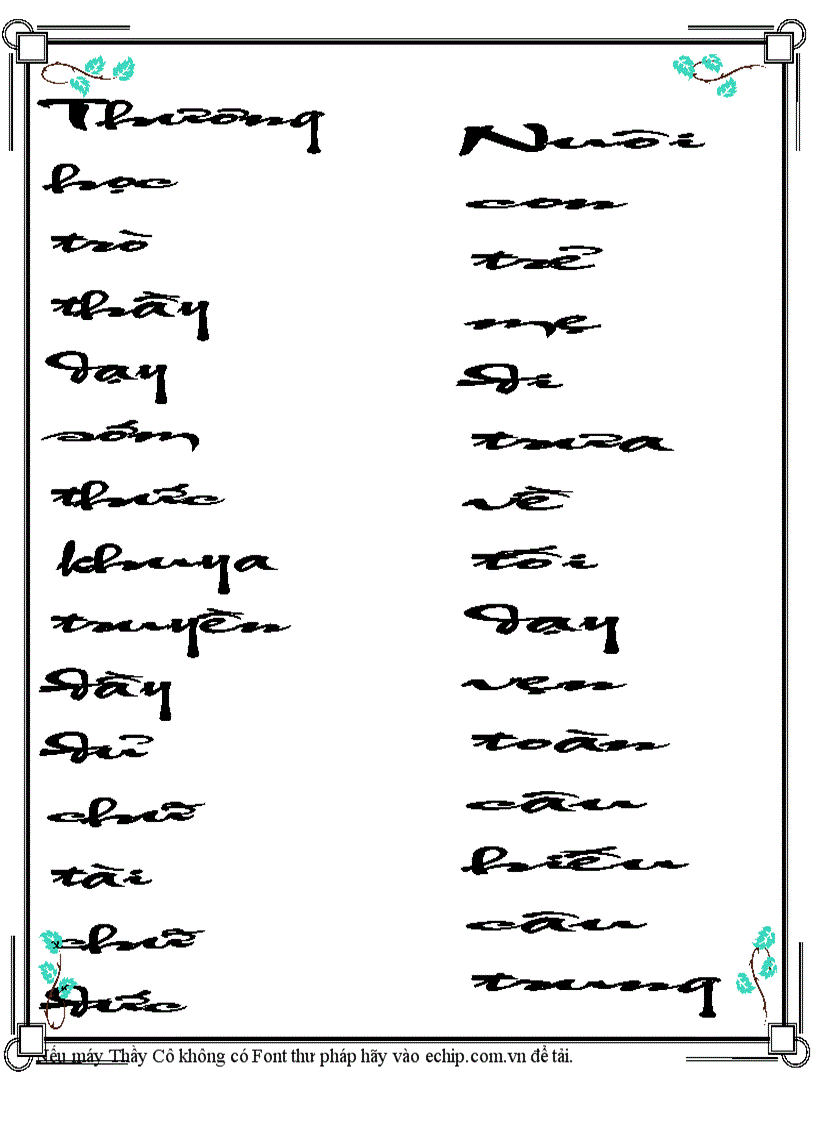 Thương
học
trò
thầy
dạy
sớm
thức
khuya
truyền
đầy
đủ
chữ
tài
chữ
đức
Nuôi
con
trẻ
mẹ
đi
trưa
về
tối
dạy
vẹn
toàn
câu
hiếu
câu
trung
Nếu máy Thầy Cô không có Font thư pháp hãy vào echip.com.vn để tải.